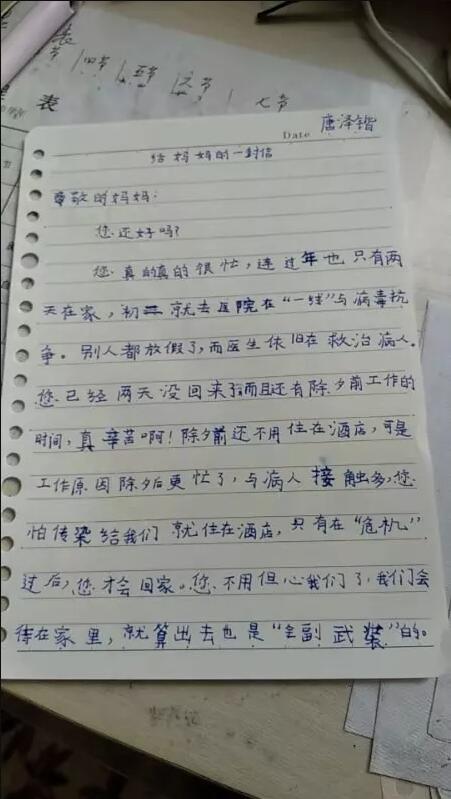 表
节 |四节 |五节 |六节 | 七节
表
Date 唐泽锴
给妈妈的一封信
尊敬的妈妈：
您还好吗？
您真的真的很忙，连过年也只有两
天在家，初二就去医院在“一线”与病毒抗
争。别人都放假了，而医生依旧在救治病人。
您已经两天没回来了而且还有除夕前工作的
时间，真辛苦啊！除夕前还不用住在酒店，可是
工作原因除夕后更忙了，与病人接触多，您
怕传染给我们就住在酒店，只有在“危机”
过后，您才会回家。您不用但心我们了，我们会
待在家里，就算出去也是“全副武装”的。